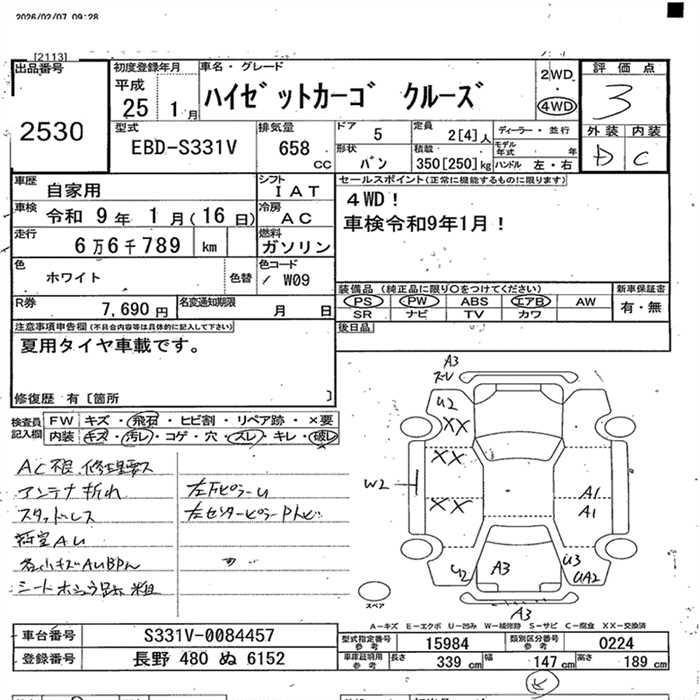 2026/02/07 09:28
[2113]
出品番号
2530
初度登録年月
平成 25 1 月
車名・グレード
ハイゼットカーゴ クルーズ
2WD
4WD
評価点
3
外装 内装
D C
型式
EBD-S331V
排気量
658 cc
ドア 5
形状 バン
定員 2[4]人
積載 350[250]kg
ディーラー・並行
モデル年式 年
ハンドル 左・右
車歴
自家用
シフト
IAT
車検
令和 9年 1月(16日)
冷房
AC
走行
6万6千789 km
燃料
ガソリン
セールスポイント(正常に機能するものに限ります)
4WD!
車検令和9年1月!
色
ホワイト
色替
色コード
/ W09
R券
7,690円
名変通知期限
月 日
装備品 (純正品に限り○をつけてください)
PS PW ABS エアB AW
SR ナビ TV カワ
新車保証書
有・無
後日品
注意事項申告欄(不具合内容等は具体的に記入して下さい)
夏用タイヤ車載です。
修復歴 有〔箇所 〕
検査員記入欄
FW キズ・飛石・ヒビ割・リペア跡・×要
内装 キズ・汚レ・コゲ・穴・スレ・キレ・破レ
AC不良.修理要ス
アンテナ折れ
スタッドレス
左下ピラーU
左センターピラーPトビ
荷室AU
各小キズAUBPん
A3
U2
XX
XX
XX
W2
A1
A1
U2
A3
U3
UA2
A3
スペア
A-キズ E-エクボ U-凹み W-補修跡 S-サビ C-腐食 XX-交換済
車台番号
S331V-0084457
登録番号
長野 480 ぬ 6152
型式指定番号 参考
15984
類別区分番号 参考
0224
車庫証明用 参考
長さ 339 cm 幅 147 cm 高さ 189 cm